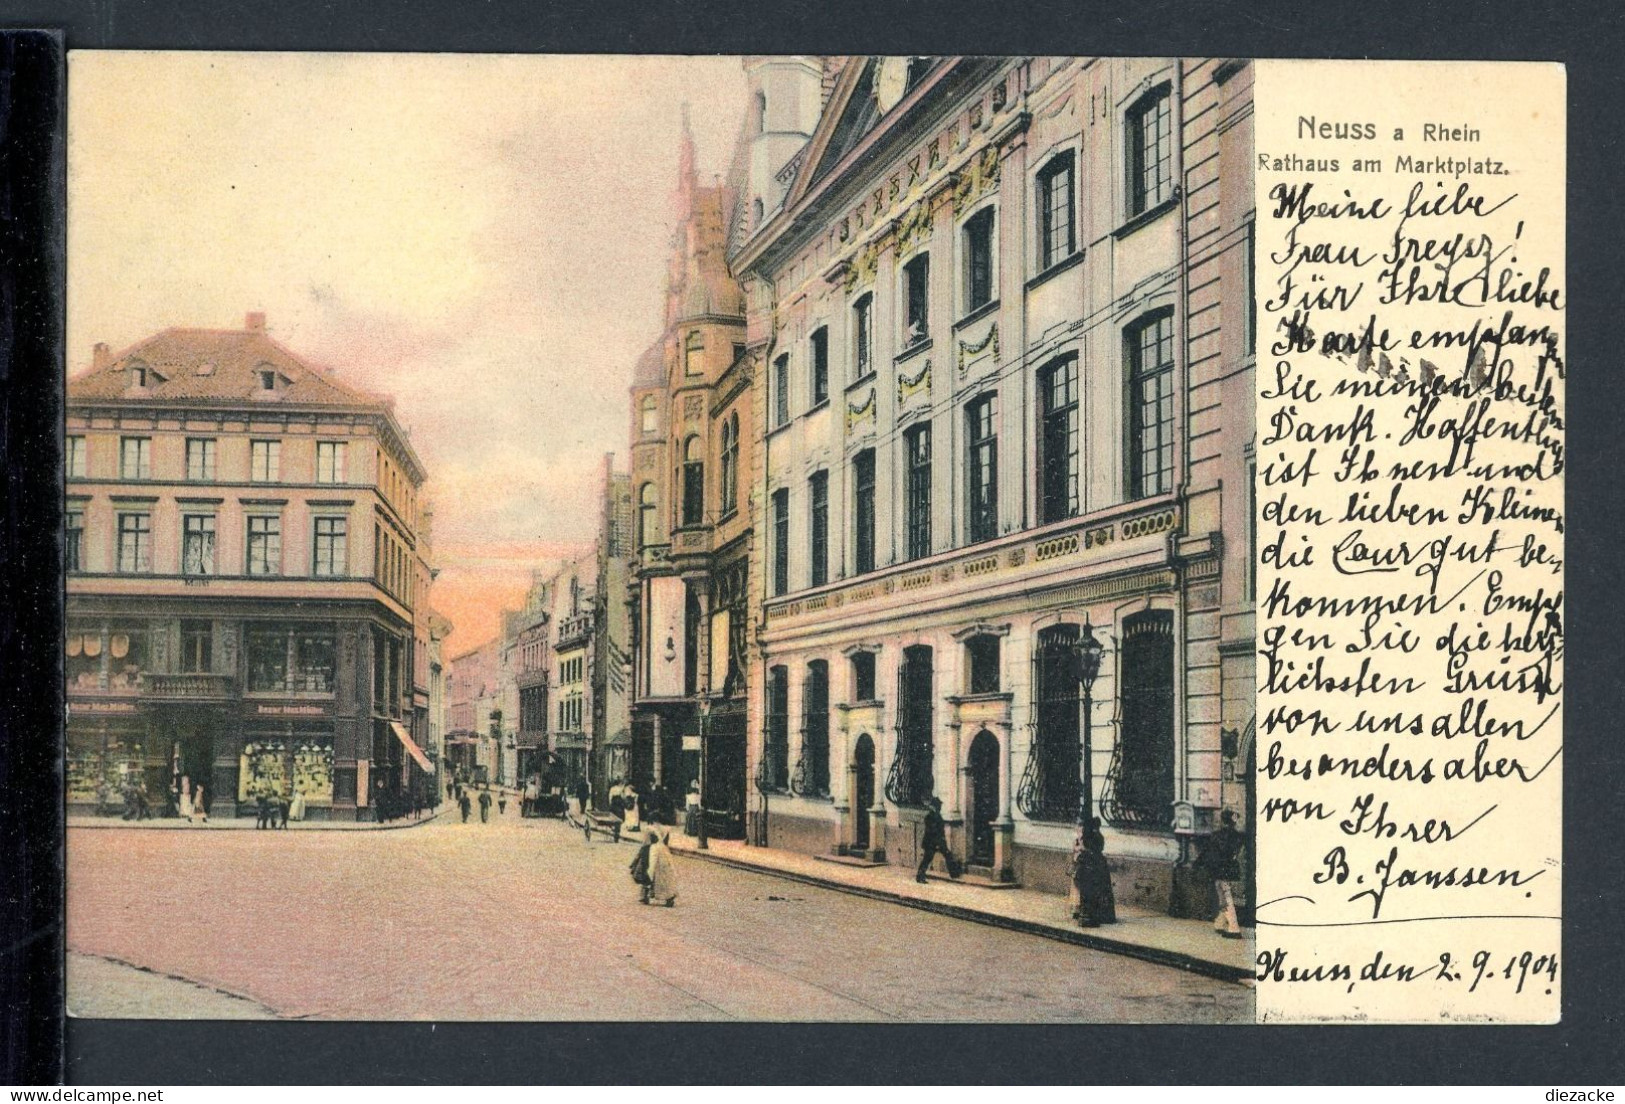 Neuss a Rhein
Rathaus am Marktplatz.
Meine liebe
Frau Freysz!
Für Ihre liebe
Karte empfangen
Sie meinen besten
Dank. Hoffentlich
ist Ihnen und
den lieben Kleinen
die Cour gut be-
kommen. Empfan
gen Sie die herz-
lichsten Grüsse
von uns allen
besonders aber
von Ihrer
B. Janssen.
Neuss, den 2.9.1904.
Markt
Bazar Max Müller
Bazar Max Müller
diezacke